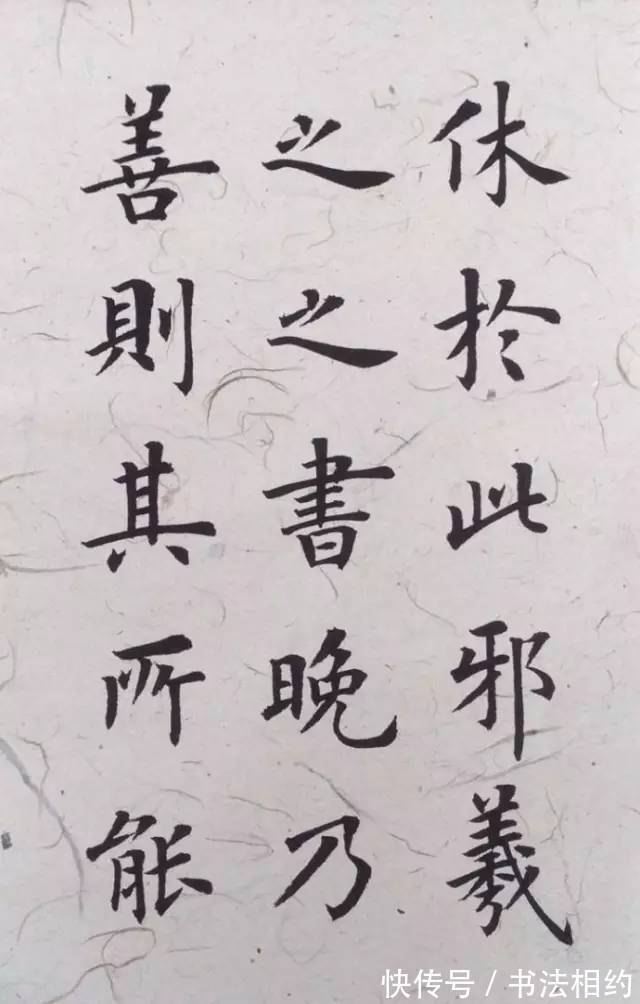 休於此邪羲
之之書晚乃
善則其所能
快传号/书法相约